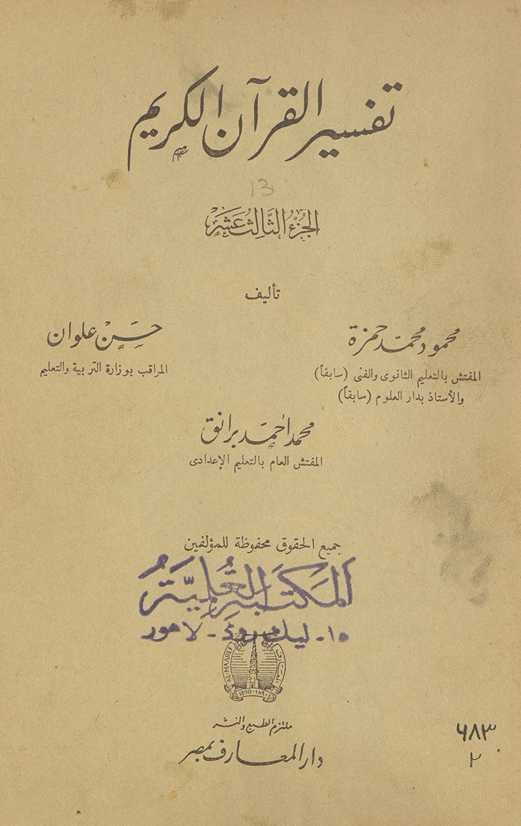 تفسير القرآن الكريم
13
الجزء الثالث عشر
تأليف
محمود محمد حمزة
المفتش بالتعليم الثانوى والفنى (سابقاً)
والأستاذ بدار العلوم (سابقاً)
حسن علوان
المراقب بوزارة التربية والتعليم
محمد أحمد برانق
المفتش العام بالتعليم الإعدادى
جميع الحقوق محفوظة للمؤلفين
المكتبة العلمية
١٥ - ليك روڈ - لاهور
ملتزم الطبع والنشر
دار المعارف بمصر
٦٨٣
٢